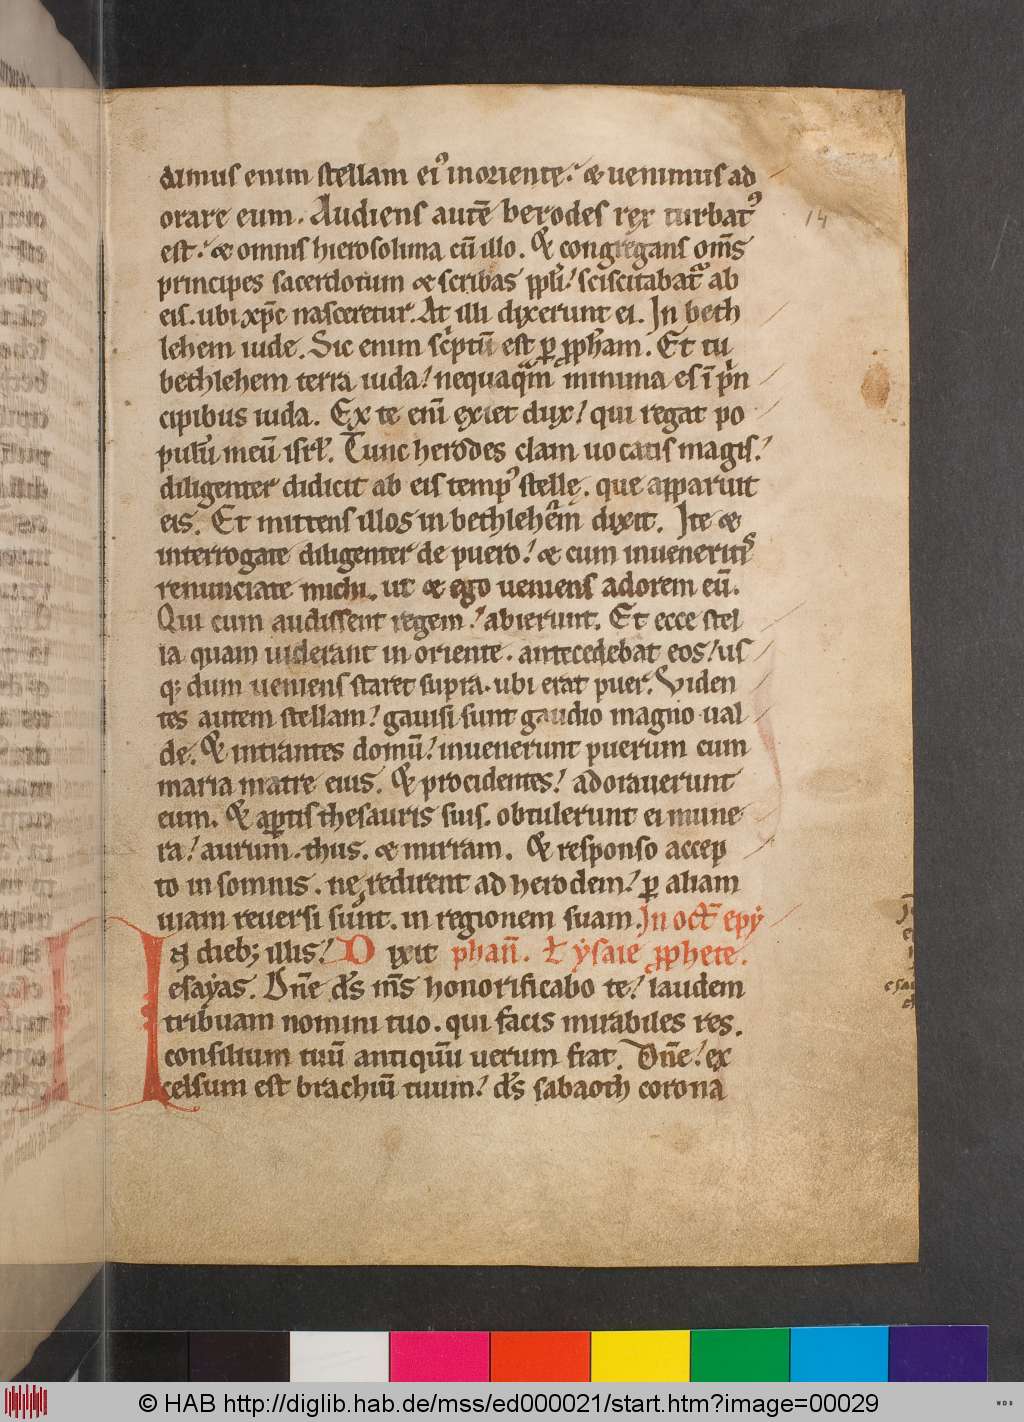 dimus enim stellam ei᷒ in oriente. & uenimus ad
orare eum. Audiens autē herodes rex turbat᷒
est. & omnis hierosolima cū illo. Et congregans om̄s
principes sacerdotum & scribas ppli. sciscitabat᷑ ab
eis. ubi xp̄c nasceretur. At illi dixerunt ei. In beth
lehem iude. Sic enim sc͛ptū est ꝑ ꝓph̄am. Et tu
bethlehem terra iuda. nequaq̄m minima es ī p͛n
cipibus iuda. Ex te enī exiet dux. qui regat po
pulū meū isrł. Tunc herodes clam uocatis magis.
diligenter didicit ab eis temp᷒ stelle. que apparuit
eis. Et mittens illos in bethlehē̄m dixit. Ite &
interrogate diligenter de puero. & cum inueneritis
renunciate michi. ut & ego ueniens adorem eū.
Qui cum audissent regem. abierunt. Et ecce stel
la quam uiderant in oriente. antecedebat eos. us
q; dum ueniens staret supra. ubi erat puer. Viden
tes autem stellam. gauisi sunt gaudio magno ual
de. Et intrantes domū. inuenerunt puerum cum
maria matre eius. Et procidentes. adorauerunt
eum. Et aꝑtis thesauris suis. obtulerunt ei mune
ra. aurum. thus. & mirram. Et responso accep
to in somnis. ne redirent ad herodem. ꝑ aliam
uiam reuersi sunt. in regionem suam. In oct̄ epẏ
In dieb; illis. Dixit phan̄. ł ẏsaie ꝓphete.
esaẏas. Dn̄e ds̄ ms̄ honorificabo te. laudem
tribuam nomini tuo. qui facis mirabiles res.
consilium tuū antiquū uerum fiat. Dn̄e. ex
celsum est brachiū tuum. ds̄ sabaoth corona
14
© HAB http://diglib.hab.de/mss/ed000021/start.htm?image=00029